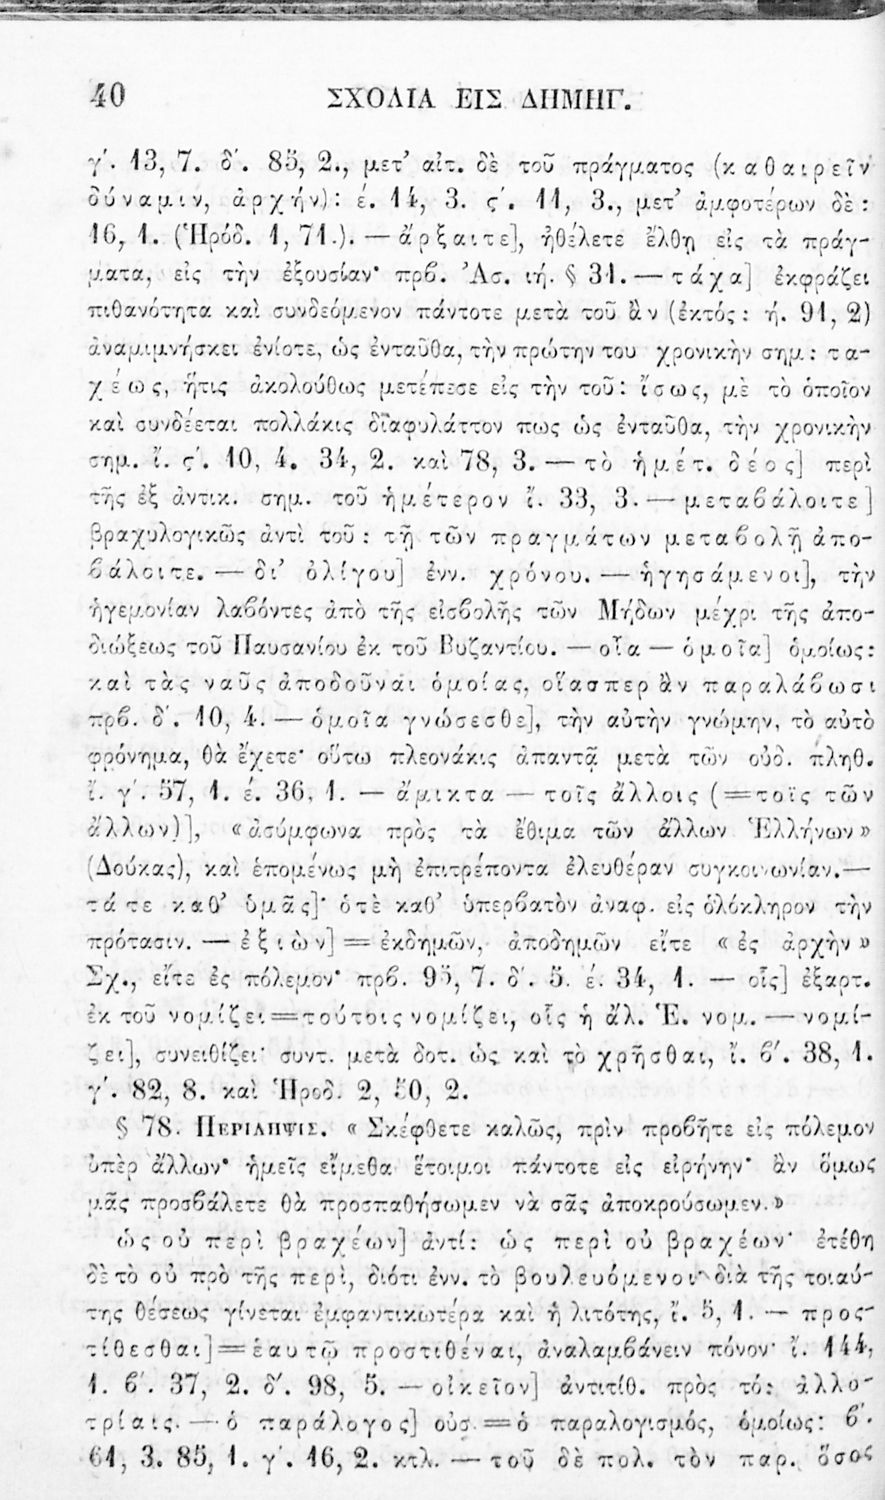 40 ΣΧΟΛΙΑ ΕΙΣ ΔΗΜΗΓ.
γ΄. 13, 7. δ΄. 85, 2., μετ’ αἰτ. δὲ τοῦ πράγματος (καθαιρεῖν
δύναμιν, ἀρχήν): έ. 14, 3. ς΄. 11, 3., μετ’ ἀμφοτέρων δὲ:
16, 1. (Ἡρόδ. 1, 71.). — ἄρξαιτε], ἠθέλετε ἔλθῃ εἰς τὰ πράγ-
ματα, εἰς τὴν ἐξουσίαν· πρβ. Ἀσ. ιή. § 31. — τάχα] ἐκφράζει
πιθανότητα καὶ συνδεόμενον πάντοτε μετὰ τοῦ ἂν (ἐκτός: ή. 91, 2)
ἀναμιμνήσκει ἐνίοτε, ὡς ἐνταῦθα, τὴν πρώτην του χρονικὴν σημ: τα-
χέως, ἥτις ἀκολούθως μετέπεσε εἰς τὴν τοῦ: ἴσως, μὲ τὸ ὁποῖον
καὶ συνδέεται πολλάκις διαφυλάττον πως ὡς ἐνταῦθα, τὴν χρονικὴν
σημ. ἴ. ς΄. 10, 4. 34, 2. καὶ 78, 3. — τὸ ἡμέτ. δέος] περὶ
τῆς ἐξ ἀντικ. σημ. τοῦ ἡμέτερον ἴ. 33, 3. — μεταβάλοιτε]
βραχυλογικῶς ἀντὶ τοῦ: τῇ τῶν πραγμάτων μεταβολῇ ἀπο-
βάλοιτε. — δι’ ὀλίγου] ἐνν. χρόνου. — ἡγησάμενοι], τὴν
ἡγεμονίαν λαβόντες ἀπὸ τῆς εἰσβολῆς τῶν Μήδων μέχρι τῆς ἀπο-
διώξεως τοῦ Παυσανίου ἐκ τοῦ Βυζαντίου. — οἷα — ὁμοῖα] ὁμοίως:
καὶ τὰς ναῦς ἀποδοῦναι ὁμοίας, οἵασπερ ἂν παραλάβωσι
πρβ. δ΄. 10, 4. — ὁμοῖα γνώσεσθε], τὴν αὐτὴν γνώμην, τὸ αὐτὸ
φρόνημα, θὰ ἔχετε· οὕτω πλεονάκις ἀπαντᾷ μετὰ τῶν οὐδ. πληθ.
ἴ. γ΄. 57, 1. έ. 36, 1. — ἄμικτα — τοῖς ἄλλοις (=τοῖς τῶν
ἄλλων)], «ἀσύμφωνα πρὸς τὰ ἔθιμα τῶν ἄλλων Ἑλλήνων»
(Δούκας), καὶ ἑπομένως μὴ ἐπιτρέποντα ἐλευθέραν συγκοινωνίαν.—
τά τε καθ’ ὑμᾶς]· ὁ τὲ καθ’ ὑπερβατὸν ἀναφ. εἰς ὁλόκληρον τὴν
πρότασιν. — ἐξιὼν] = ἐκδημῶν, ἀποδημῶν εἴτε «ἐς ἀρχὴν»
Σχ., εἴτε ἐς πόλεμον· πρβ. 95, 7. δ΄. 5. έ. 34, 1. — οἷς] ἐξαρτ.
ἐκ τοῦ νομίζει=τούτοις νομίζει, οἷς ἡ ἄλ. Ἑ. νομ. — νομί-
ζει], συνειθίζει· συντ. μετὰ δοτ. ὡς καὶ τὸ χρῆσθαι, ἴ. β΄. 38, 1.
γ΄. 82, 8. καὶ Ἡροδ. 2, 50, 2.
§ 78. ΠΕΡΙΛΗΨΙΣ. «Σκέφθετε καλῶς, πρὶν προβῆτε εἰς πόλεμον
ὑπὲρ ἄλλων· ἡμεῖς εἴμεθα ἕτοιμοι πάντοτε εἰς εἰρήνην· ἂν ὅμως
μᾶς προσβάλετε θὰ προσπαθήσωμεν νὰ σᾶς ἀποκρούσωμεν.»
ὡς οὐ περὶ βραχέων] ἀντί: ὡς περὶ οὐ βραχέων· ἐτέθη
δὲ τὸ οὐ πρὸ τῆς περὶ, διότι ἐνν. τὸ βουλευόμενοι· διὰ τῆς τοιαύ-
της θέσεως γίνεται ἐμφαντικωτέρα καὶ ἡ λιτότης, ἴ. 5, 1. — προς-
τίθεσθαι]=ἑαυτῷ προστιθέναι, ἀναλαμβάνειν πόνον· ἴ. 144,
1. β΄. 37, 2. δ΄. 98, 5. — οἰκεῖον] ἀντιτίθ. πρὸς τό: ἀλλο-
τρίαις. — ὁ παράλογος] οὐσ. = ὁ παραλογισμός, ὁμοίως: β΄.
61, 3. 85, 1. γ΄. 16, 2. κτλ. — τοῦ δὲ πολ. τὸν παρ. ὅσος